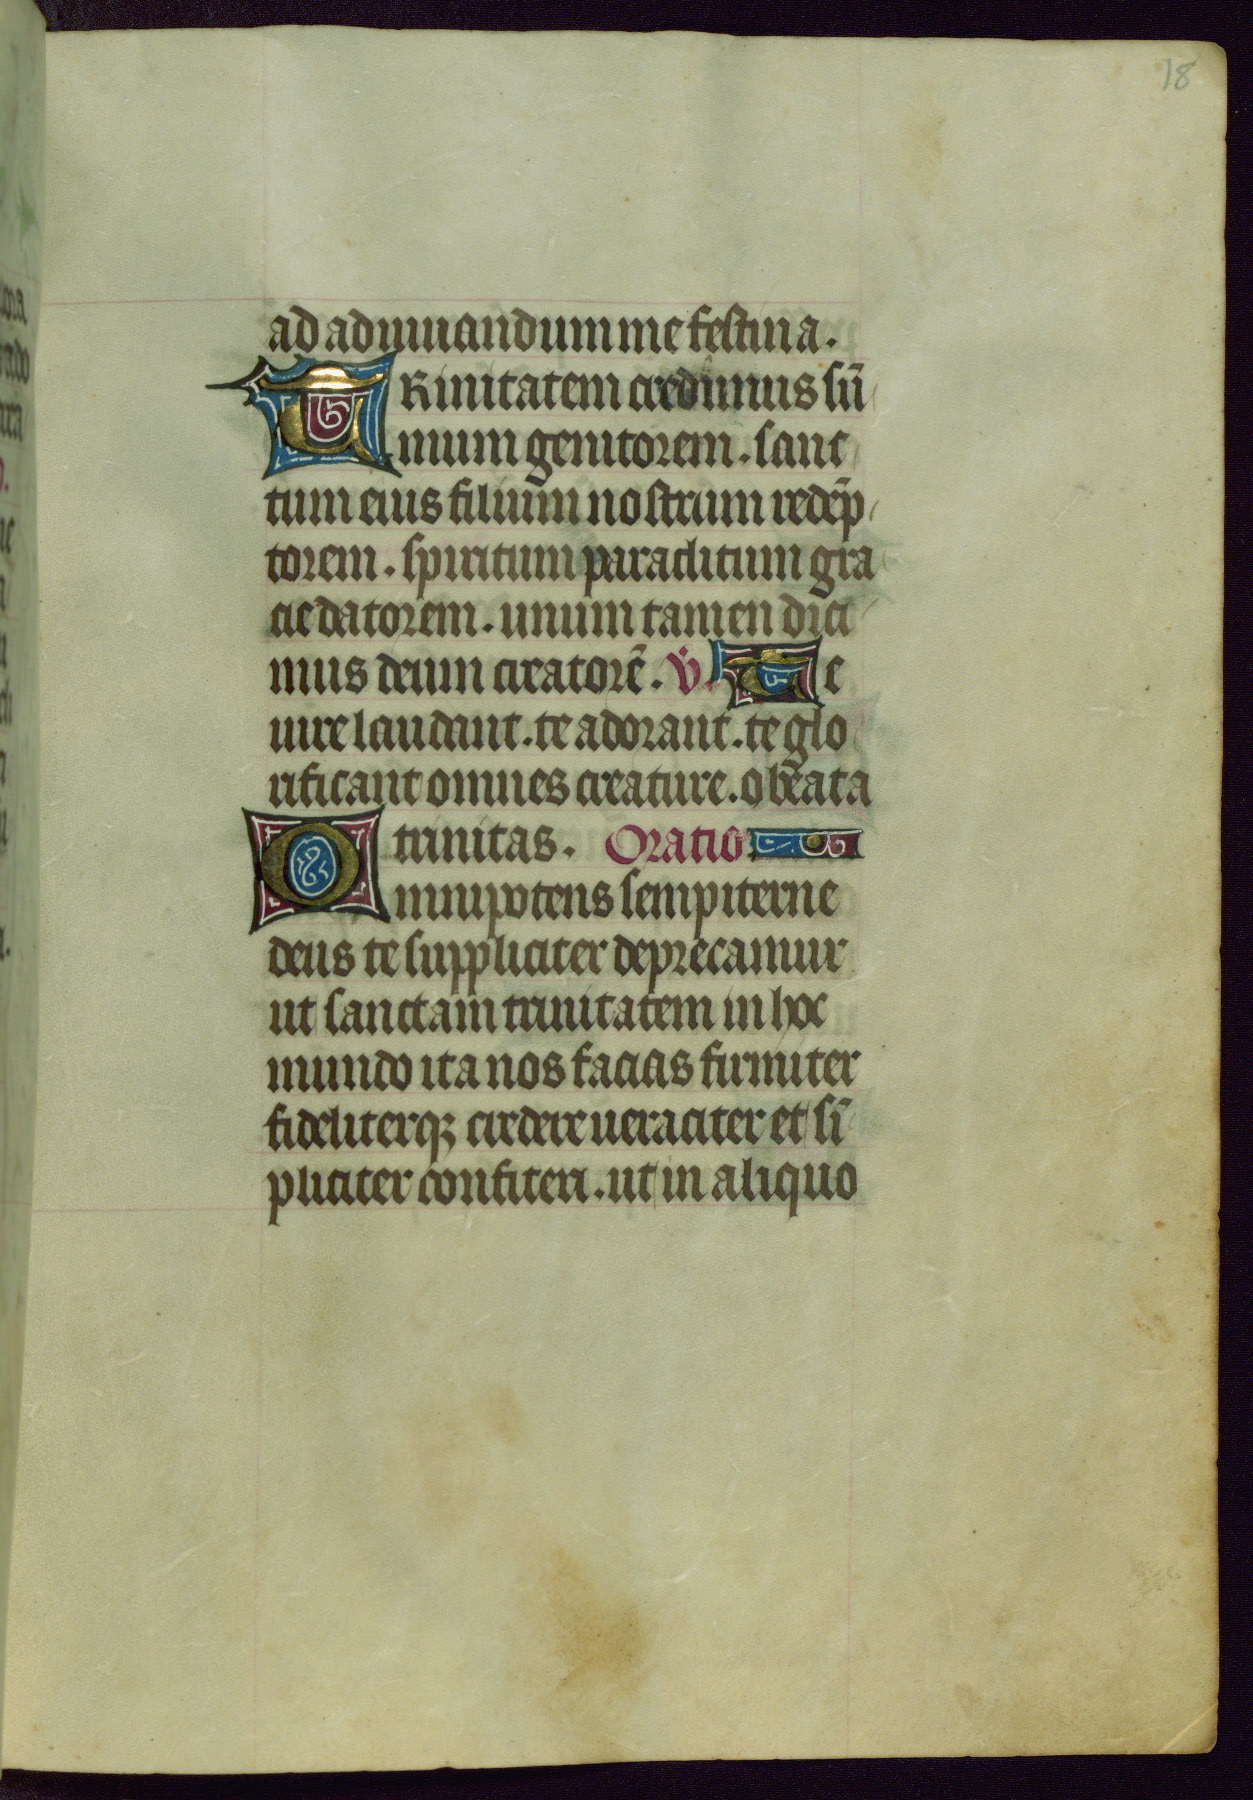 18
ad adiuuandum me festina.
TRinitatem credimus sū
mum genitorem. sanc
tum eius filium nostrum redēp
torem. spiritum paraclitum gra
cie datorem. unum tamen dici
mus deum creatorē. v̇. Te
iure laudant. te adorant. te glo
rificant omnes creature. o beata
trinitas. Oratio
Omnipotens sempiterne
deus te suppliciter deprecamur
ut sanctam trinitatem in hoc
mundo ita nos facias firmiter
fideliterqꝫ credere ueraciter et sī
pliciter confiteri. ut in aliquo